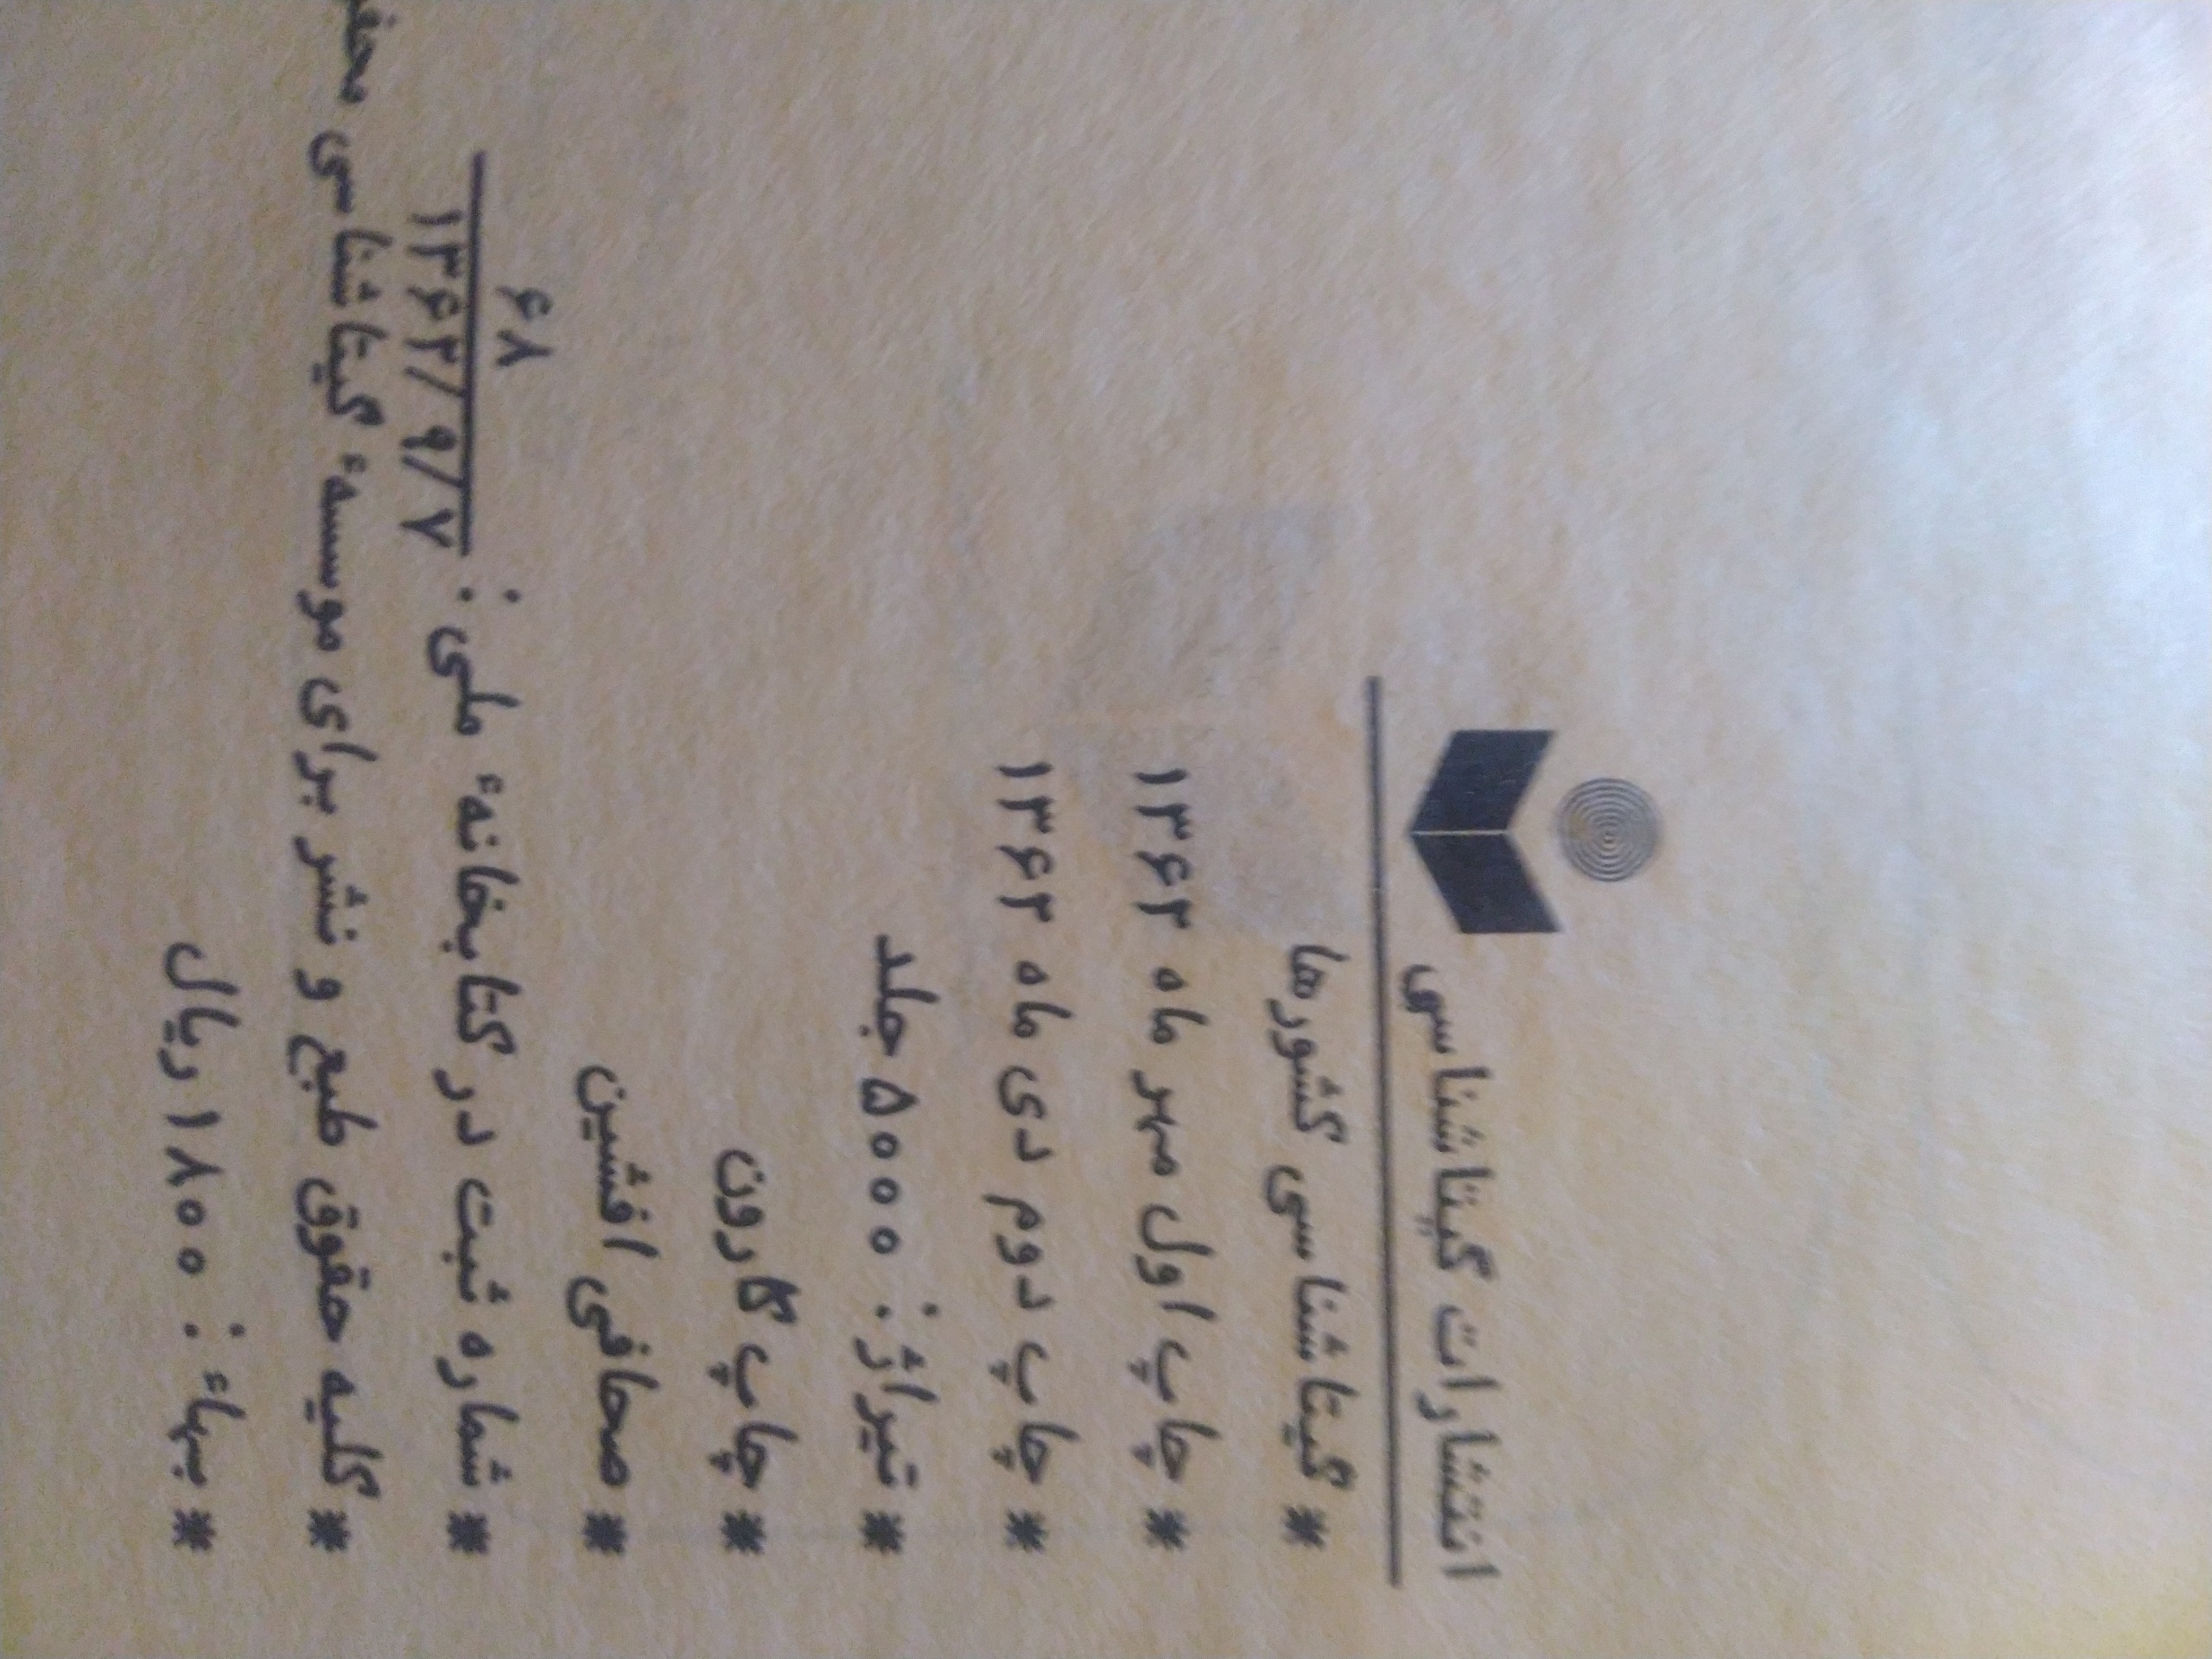 انتشارات گیتاشناسی
* گیتاشناسی کشورها
* چاپ اول مهر ماه ۱۳۶۲
* چاپ دوم دی ماه ۱۳۶۲
* تیراژ: ۵۰۰۰ جلد
* چاپ کارون
* صحافی افشین
* شماره ثبت در کتابخانهٔ ملی: ۶۸
۱۳۶۲/۹/۷
* کلیه حقوق طبع و نشر برای موسسهٔ گیتاشناسی
* بهاء: ۱۸۰۰ ریال